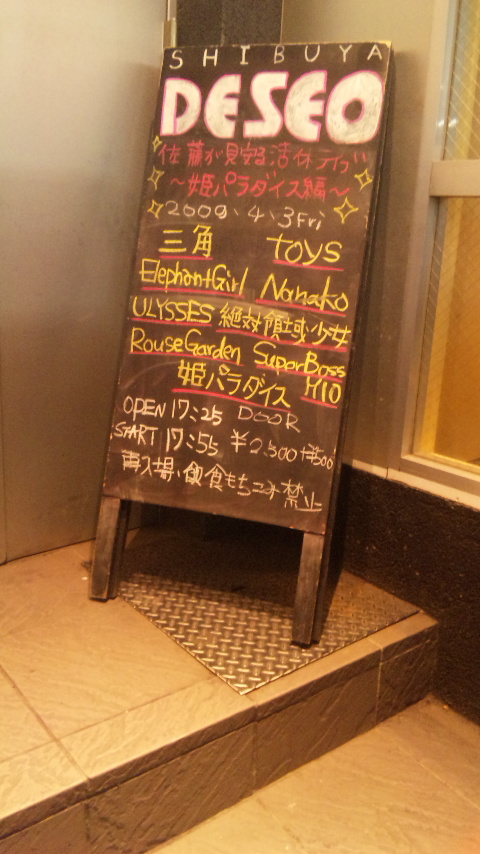 SHIBUYA
DESEO
佐藤が見守る活休ライブ
～姫パラダイス編～
2009.4.3 Fri
三角 toys
ElephantGirl Nanako
ULYSSES 絶対領域少女
RouseGarden SuperBoss
姫パラダイス MIO
OPEN 17:25 DOOR
START 17:55 ¥2,500 +¥500
再入場・飲食もちこみ禁止